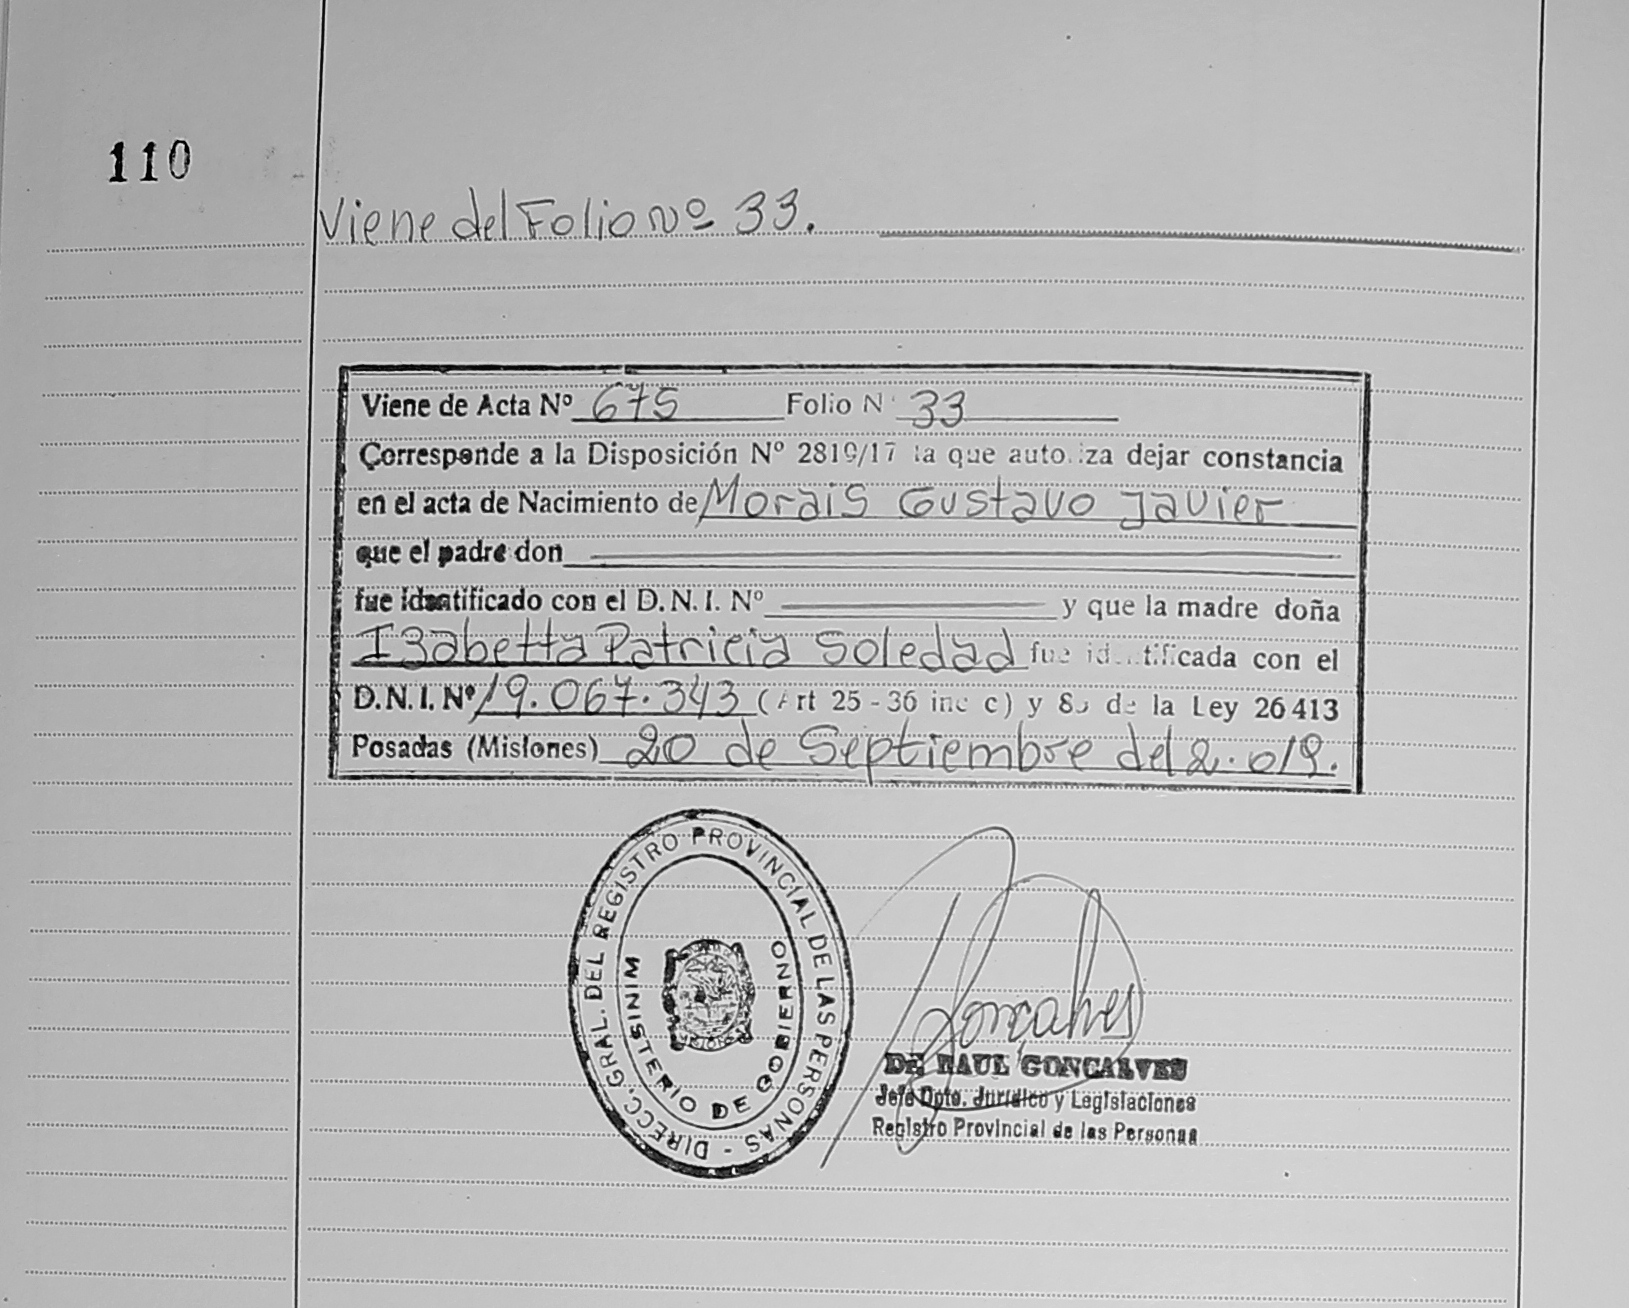 110
Viene del Folio Nº 33.
Viene de Acta Nº 675 Folio N 33
Corresponde a la Disposición Nº 2819/17 la que autoriza dejar constancia
en el acta de Nacimiento de Morais Gustavo Javier
que el padre don
fue identificado con el D.N.I. Nº y que la madre doña
Izabetta Patricia Soledad fue identificada con el
D.N.I. Nº 19.067.343 (Art 25 - 36 inc c) y de la Ley 26413
Posadas (Misiones) 20 de Septiembre del 2.019.
DIRECC. GRAL. DEL REGISTRO PROVINCIAL DE LAS PERSONAS -
MINISTERIO DE GOBIERNO
Goncalves
DR. RAUL GONCALVES
Jefe Dpto. Jurídico y Legislaciones
Registro Provincial de las Personas